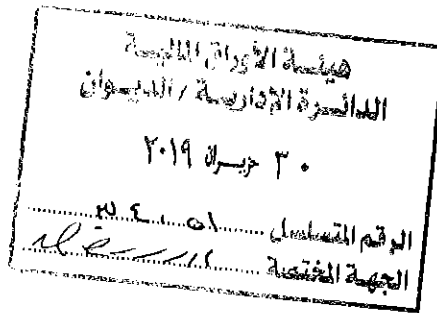 هيئة الأوراق المالية
الدائرة الإدارية / الديوان
٣٠ حزيران ٢٠١٩
الرقم المتسلسل
الجهة المختصة